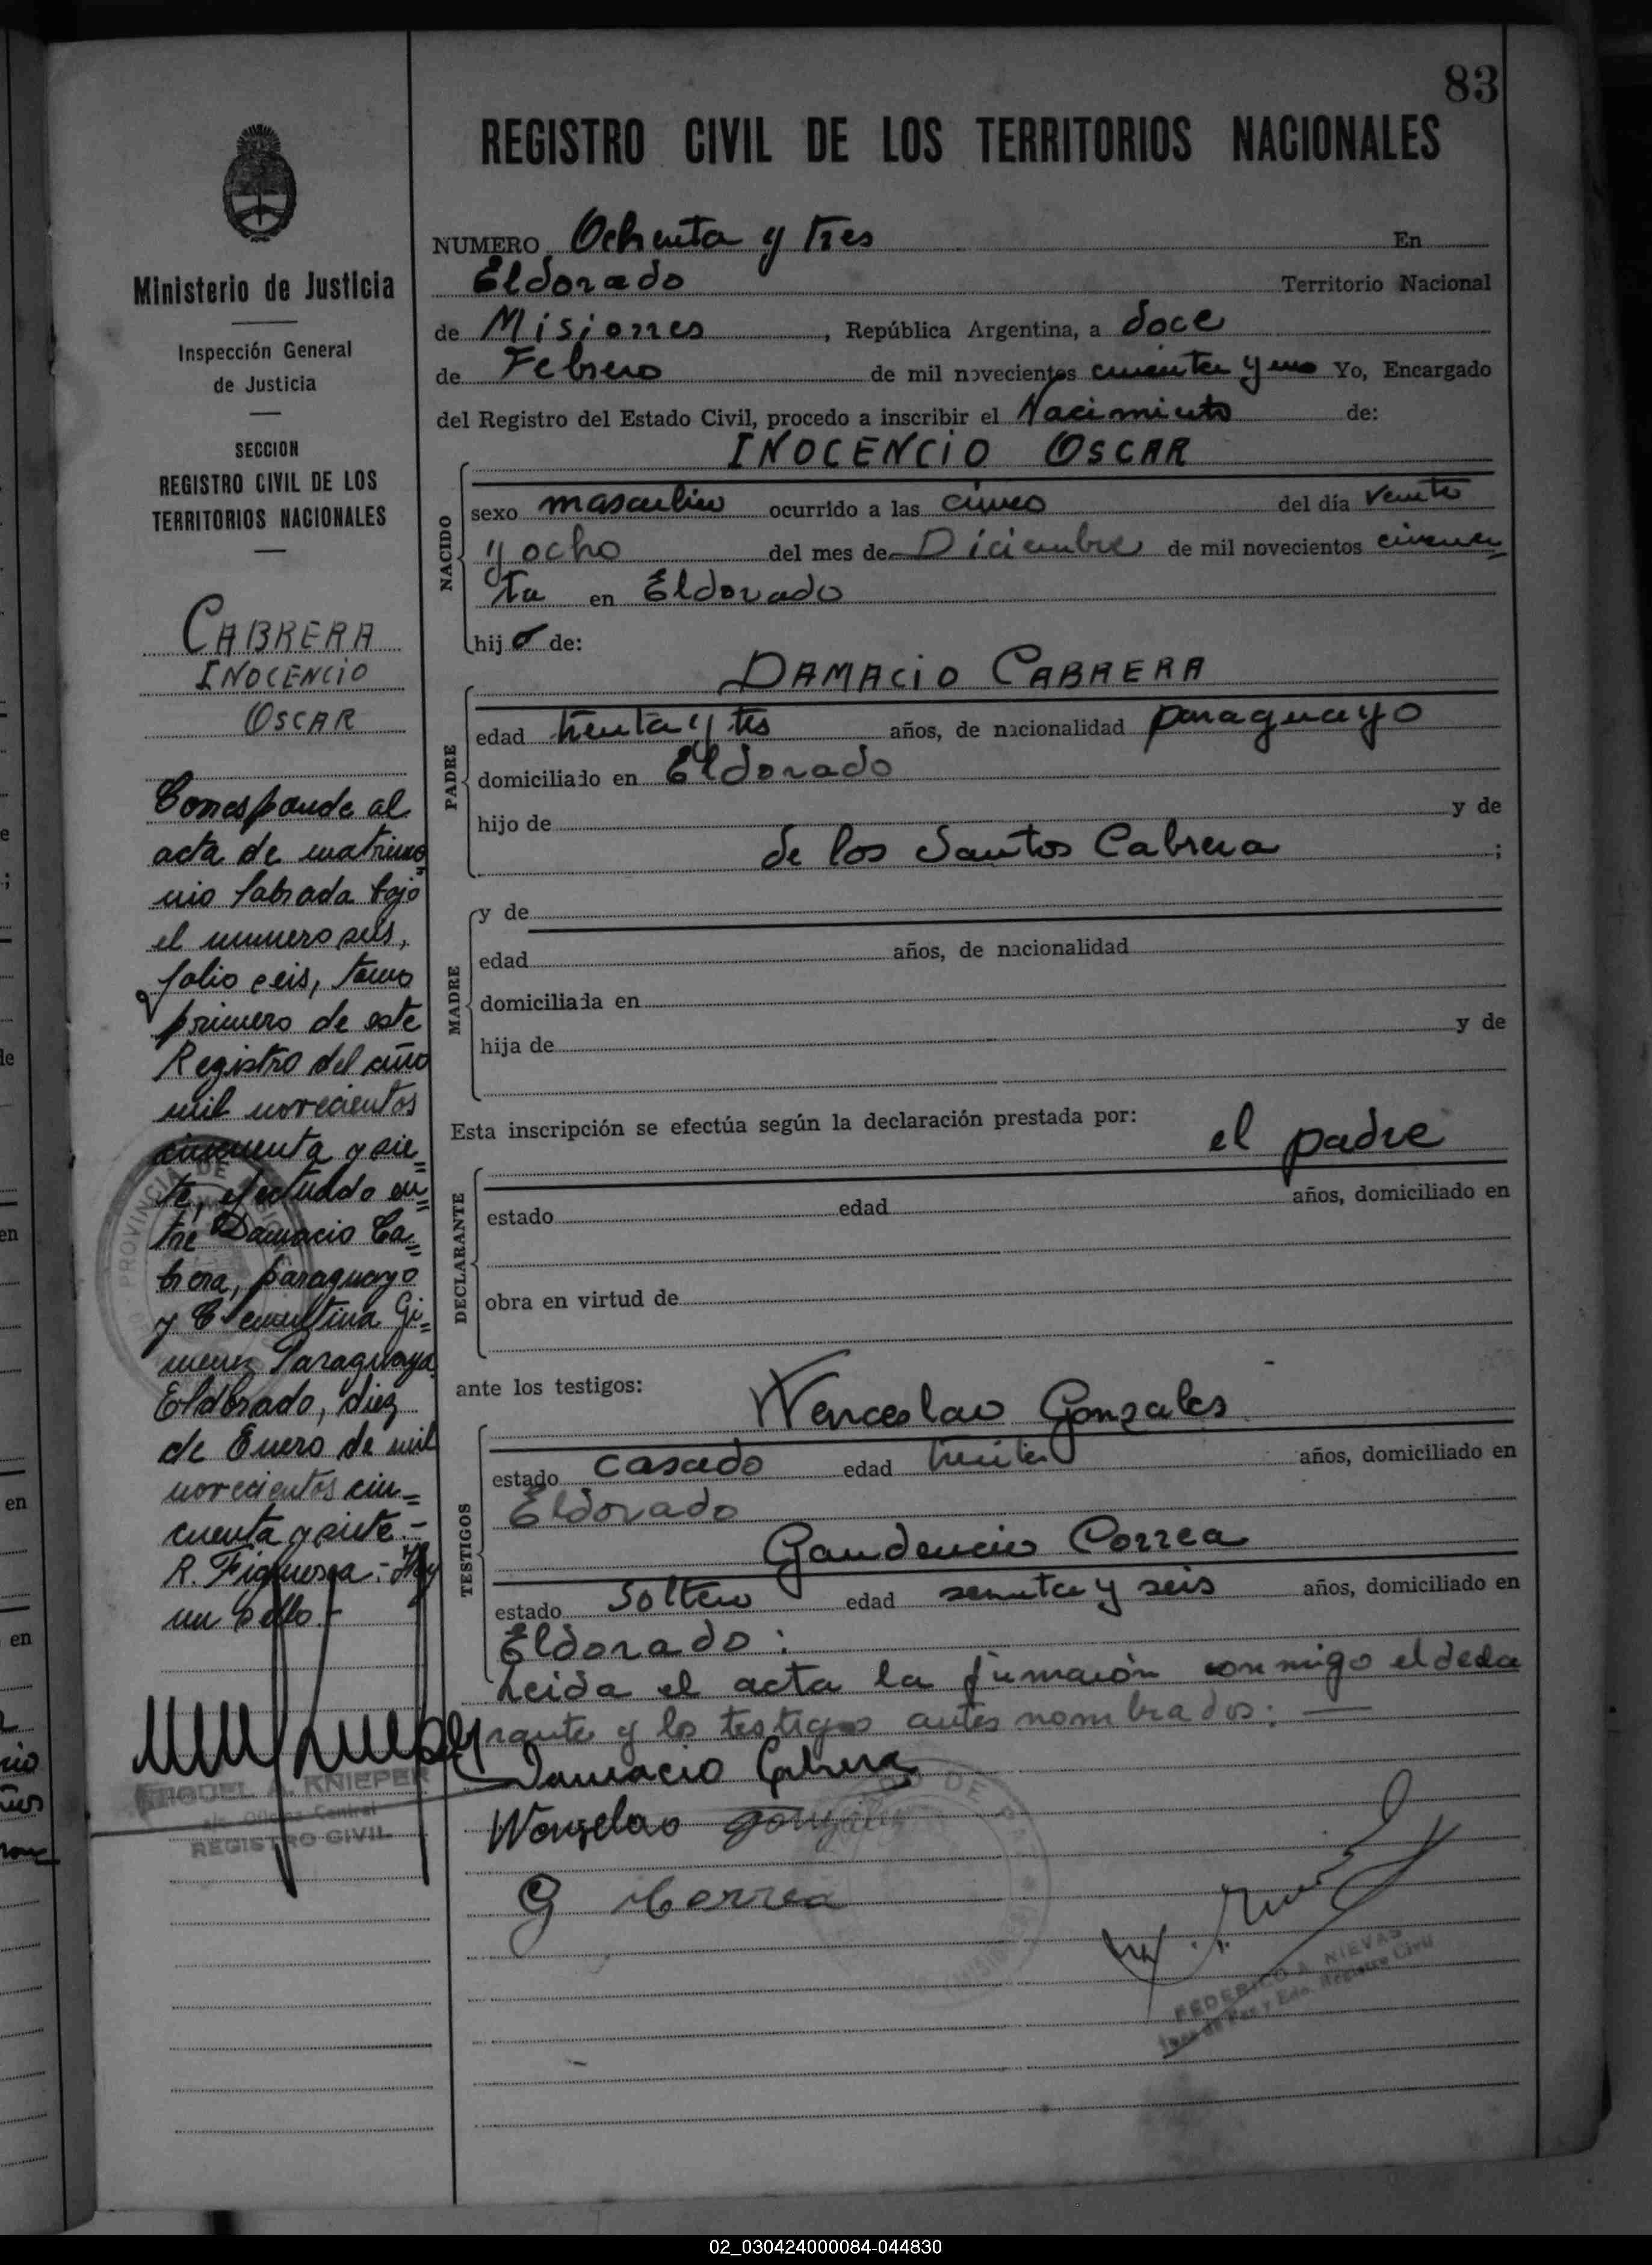 83
REGISTRO CIVIL DE LOS TERRITORIOS NACIONALES
Ministerio de Justicia
Inspección General
de Justicia
SECCION
REGISTRO CIVIL DE LOS
TERRITORIOS NACIONALES
CABRERA
INOCENCIO
OSCAR
Corresponde al
acta de matrimo
nio labrada bajo
el numero seis,
folio seis, tomo
primero de este
Registro del año
mil novecientos
cincuenta y sie=
te, efectuado en=
tre Damacio Ca=
brera, paraguayo
y Clementina Gi=
menez Paraguaya
Eldorado, diez
de Enero de mil
novecientos cin=
cuenta y siete.-
R. Figueroa:- Hay
un sello.-
MIGUEL A. KNIEPER
a/c. Oficina Central
REGISTRO CIVIL
NUMERO Ochenta y Tres En
Eldorado Territorio Nacional
de Misiones, República Argentina, a doce
de Febrero de mil novecientos cincuenta y uno Yo, Encargado
del Registro del Estado Civil, procedo a inscribir el Nacimiento de:
INOCENCIO OSCAR
NACIDO
sexo masculino ocurrido a las cinco del día veinte
y ocho del mes de Diciembre de mil novecientos cincuen
ta en Eldorado
hijo de:
DAMACIO CABRERA
PADRE
edad treinta y tres años, de nacionalidad paraguayo
domiciliado en Eldorado
hijo de y de
de los Santos Cabrera ;
MADRE
y de
edad años, de nacionalidad
domiciliada en
hija de y de
Esta inscripción se efectúa según la declaración prestada por:
el padre
DECLARANTE
estado edad años, domiciliado en
obra en virtud de
ante los testigos:
Wenceslao Gonzales
TESTIGOS
estado casado edad treinta años, domiciliado en
Eldorado
Gaudencio Correa
estado Soltero edad y seis años, domiciliado en
Eldorado:
Leida el acta la firmaron conmigo el decla
rante y los testigos antes nombrados:
Damacio Cabrera
Wenzelao
G Correa
FEDERICO A. NIEVAS
Juez de Paz y Edo. Registro Civil
PROVINCIA DE
02_030424000084-044830